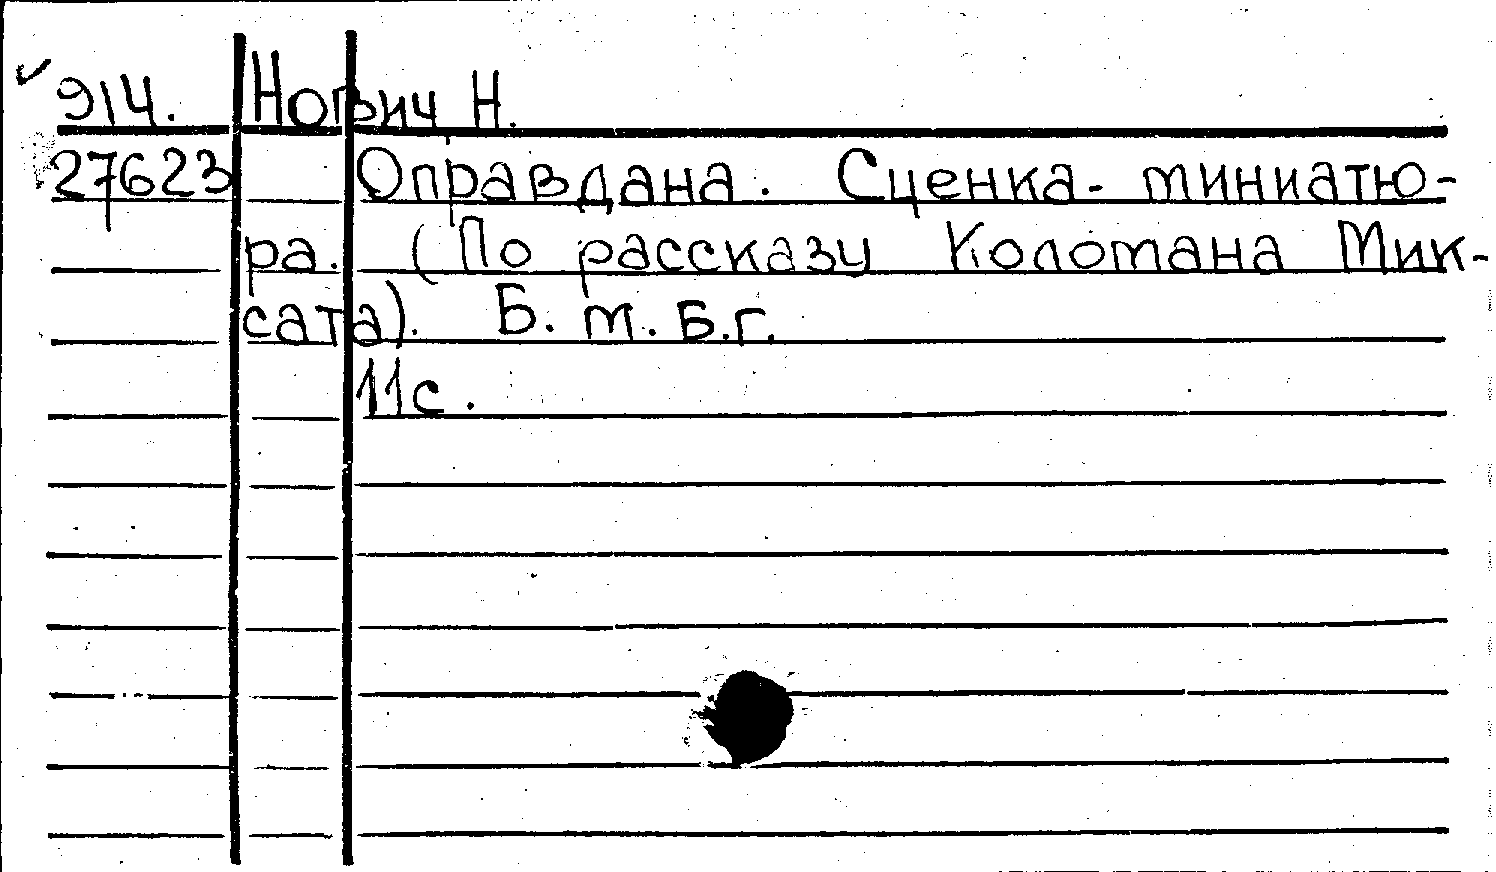 914. Норвич Н.
27623 Оправдана. Сценка-миниатю-
ра. (По рассказу Коломана Мик-
сата). Б. м. Б.г.
11с.